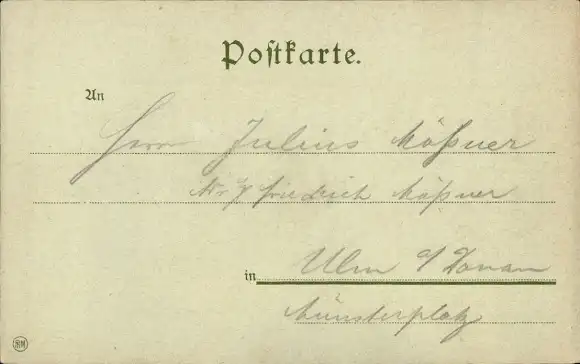 Postkarte.
An
Herrn Julius Mößner
Friedrich Mößner
in Ulm a/Donau
Münsterplatz